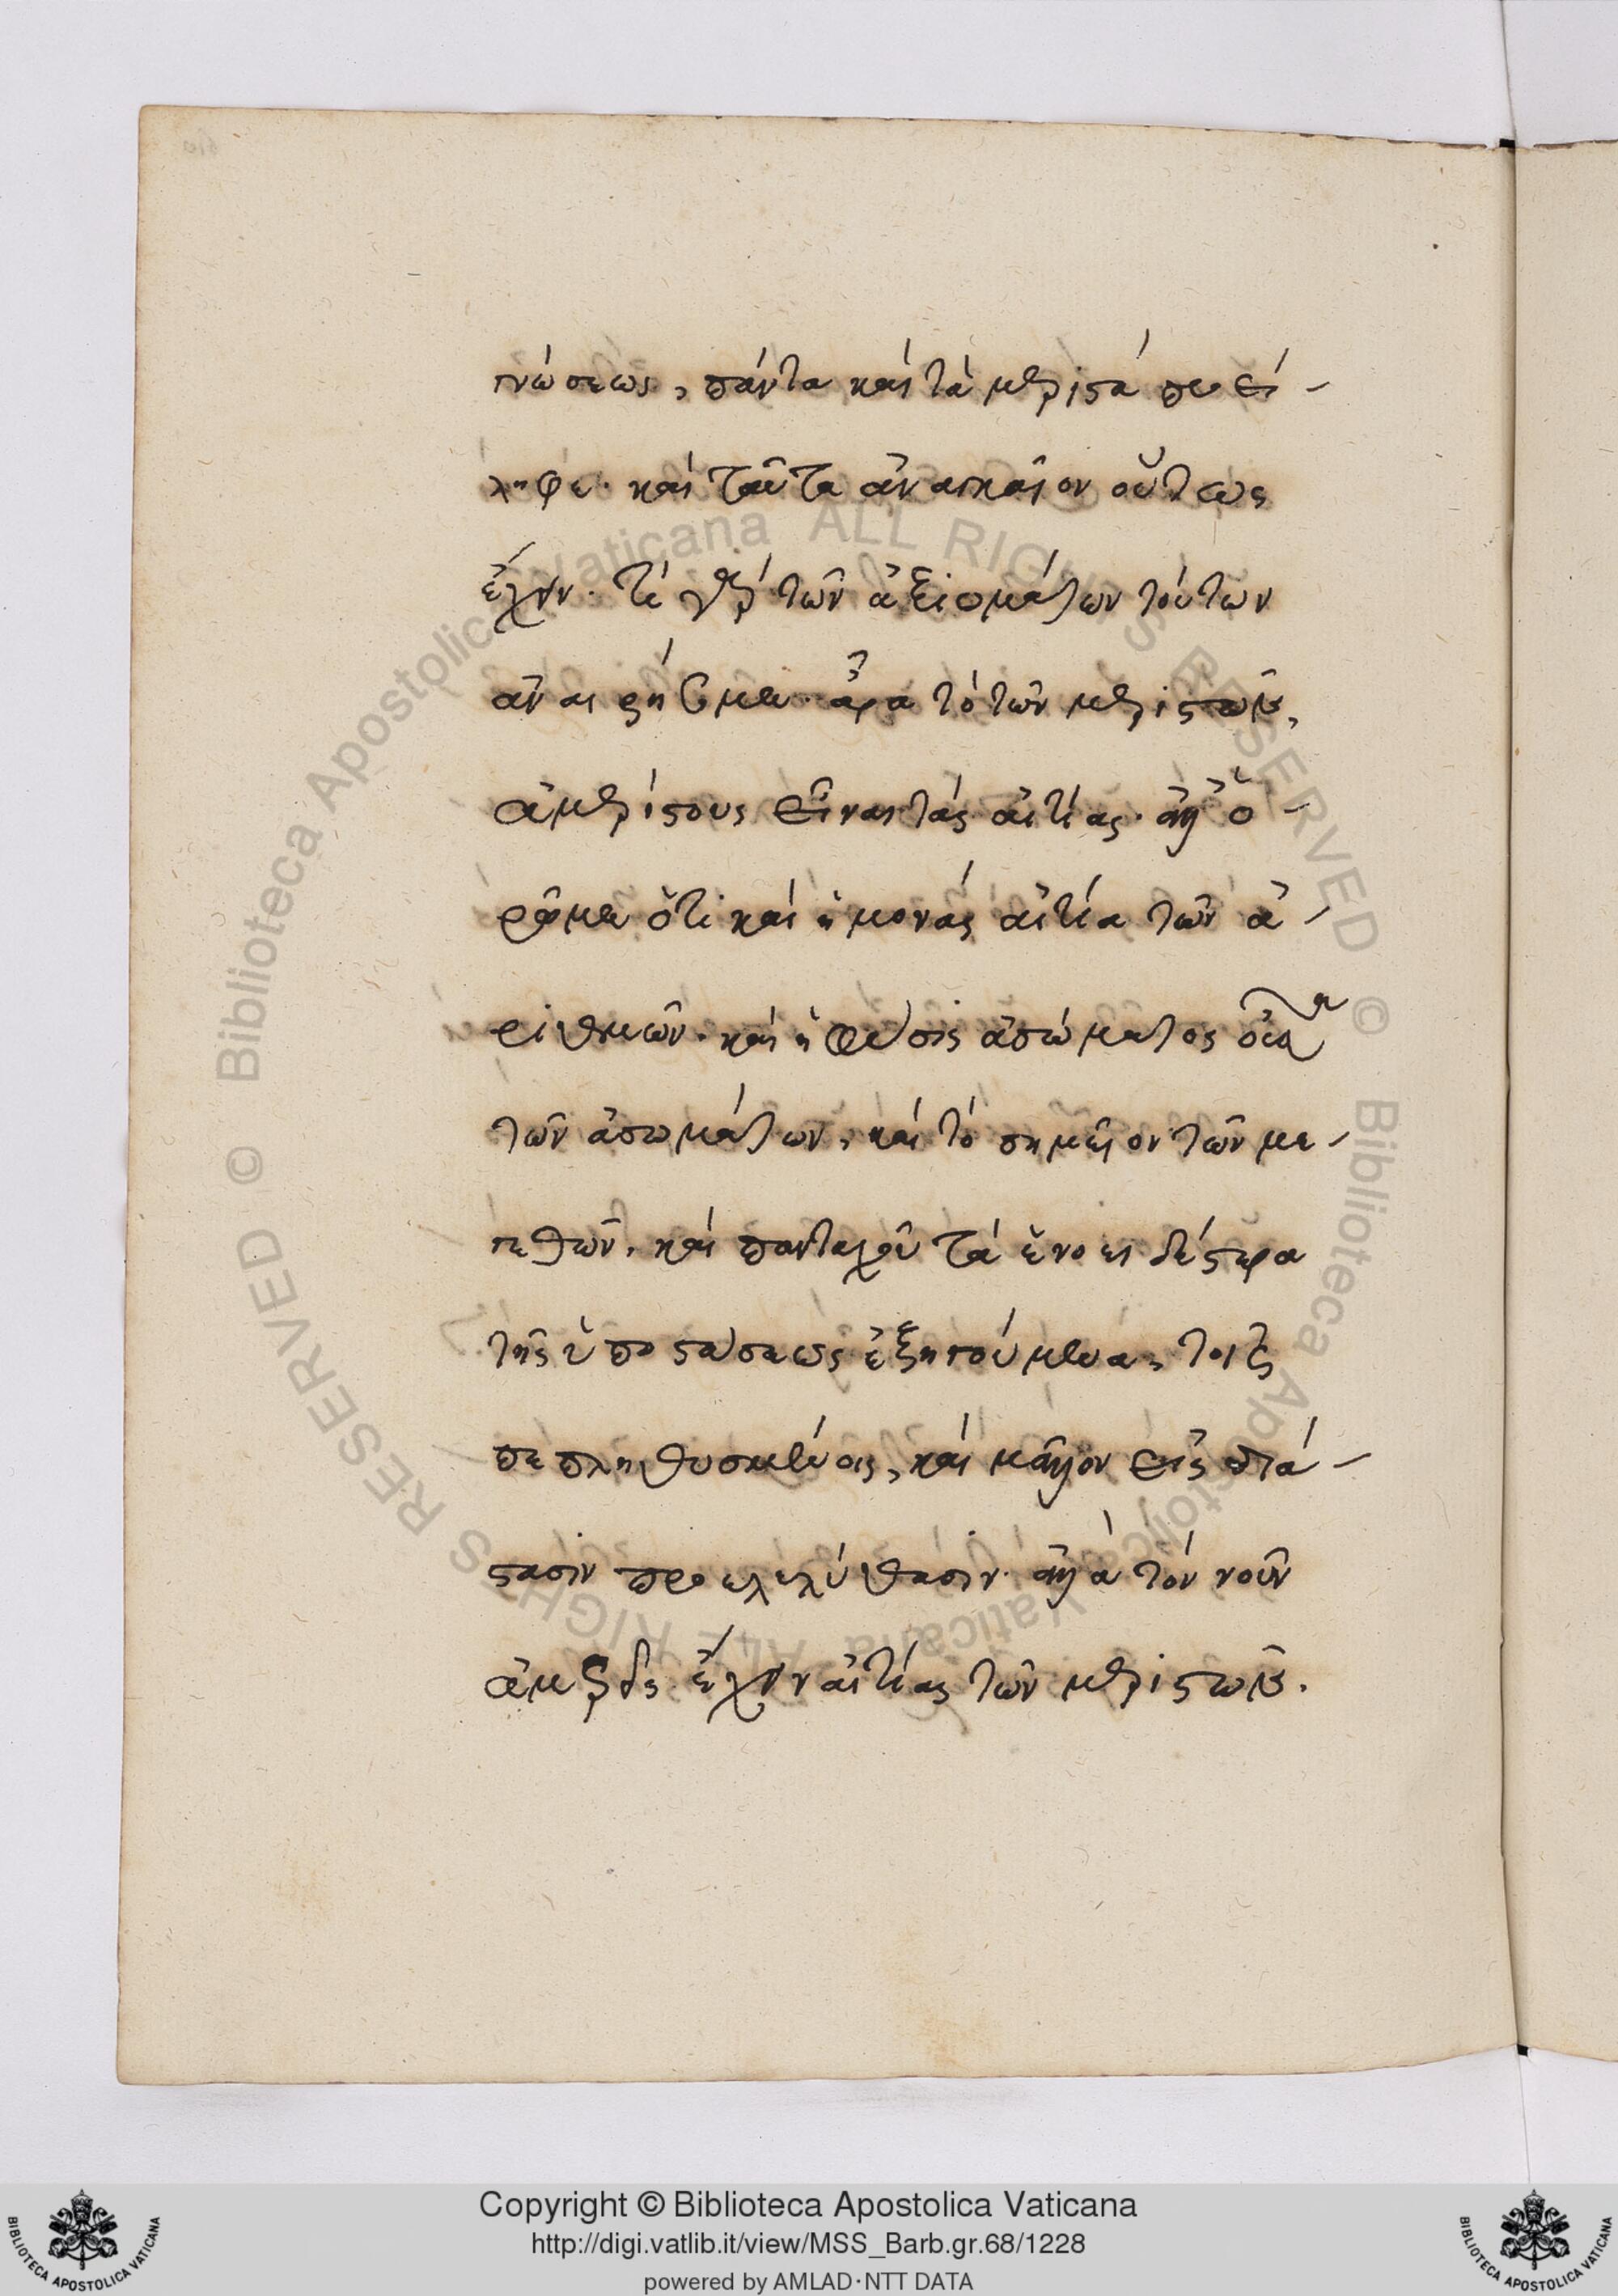 γνώσεως, πάντα καὶ τὰ μεριστὰ προεί-
ληφε. καὶ ταῦτα ἀναγκαῖον οὕτως
ἔχειν. τί γὰρ τῶν ἀξιομάτων τούτων
ἀναιρήσομεν. ἆρα τὸ τῶν μεριστῶν,
ἀμερίστους εἶναι τὰς αἰτίας. ἀλλ' ὁ-
ρῶμεν ὅτι καὶ ἡ μονὰς αἰτία τῶν ἀ-
ριθμῶν. καὶ ἡ φύσις ἀσώματος οὖσα
τῶν ἀσωμάτων, καὶ τὸ σημεῖον τῶν με-
γεθῶν. καὶ πανταχοῦ τὰ ἑνοειδέστερα
τῆς ὑποστάσεως ἐξηγούμενα, τοῖς
πεπληθυσμένοις, καὶ μᾶλλον εἰς διά-
στασιν προεληλύθασιν. ἀλλὰ τὸν νοῦν
ἀμερεῖς ἔχειν αἰτίας τῶν μεριστῶν.
Copyright © Biblioteca Apostolica Vaticana
http://digi.vatlib.it/view/MSS_Barb.gr.68/1228
powered by AMLAD·NTT DATA